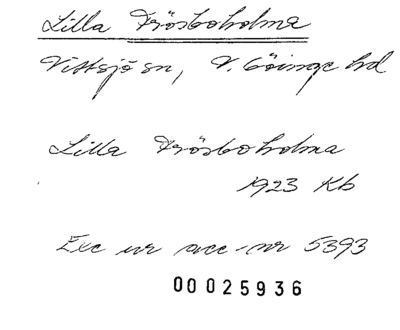 Lilla Frösboholma
Vittsjö sn, V. Göinge hd
Lilla Frösboholma
1923 Kb
Exc ur acc-nr 5393
00025936